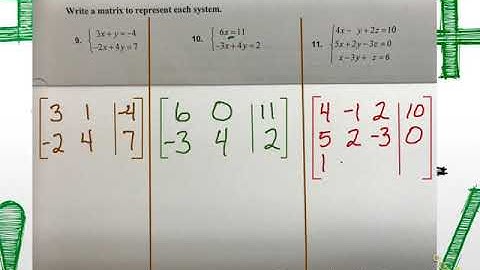 Write a matrix to represent each system.
9. { 3x + y = -4
-2x + 4y = 7
10. { 6x = 11
-3x + 4y = 2
11. { 4x - y + 2z = 10
5x + 2y - 3z = 0
x - 3y + z = 6
[ 3 1 | -4 ]
[ -2 4 | 7 ]
[ 6 0 | 11 ]
[ -3 4 | 2 ]
[ 4 -1 2 | 10 ]
[ 5 2 -3 | 0 ]
[ 1